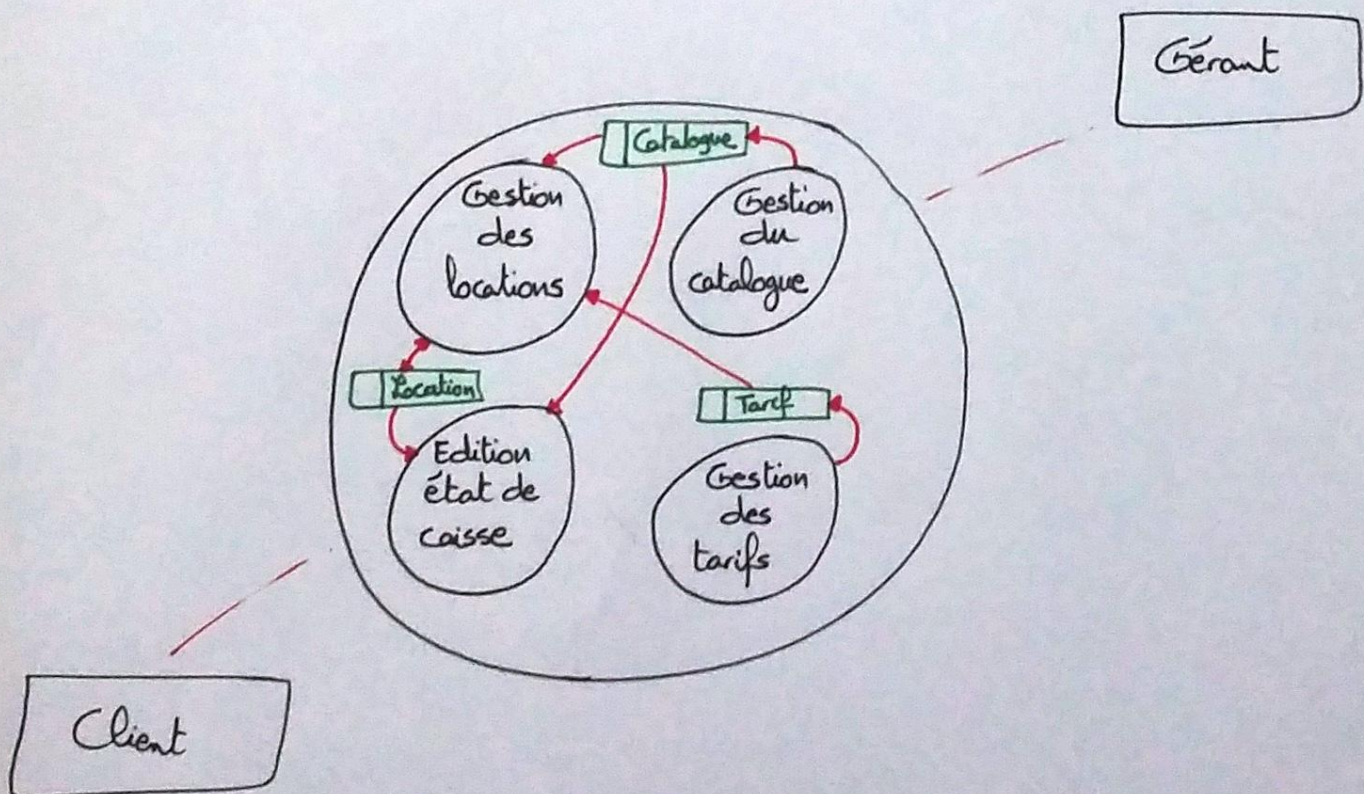 Gérant
Catalogue
Gestion
des
locations
Gestion
du
catalogue
Location
Tarif
Edition
état de
caisse
Gestion
des
tarifs
Client